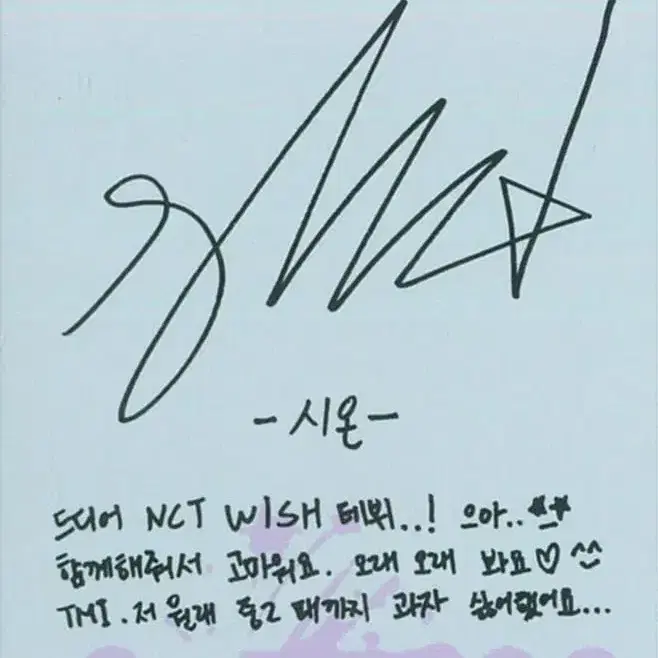 -시온-
드디어 NCT WISH 데뷔..! 으아..★_★
함께해줘서 고마워요. 오래 오래 봐요♡ ^^
TMI. 저 원래 중2 때까지 과자 싫어했어요...